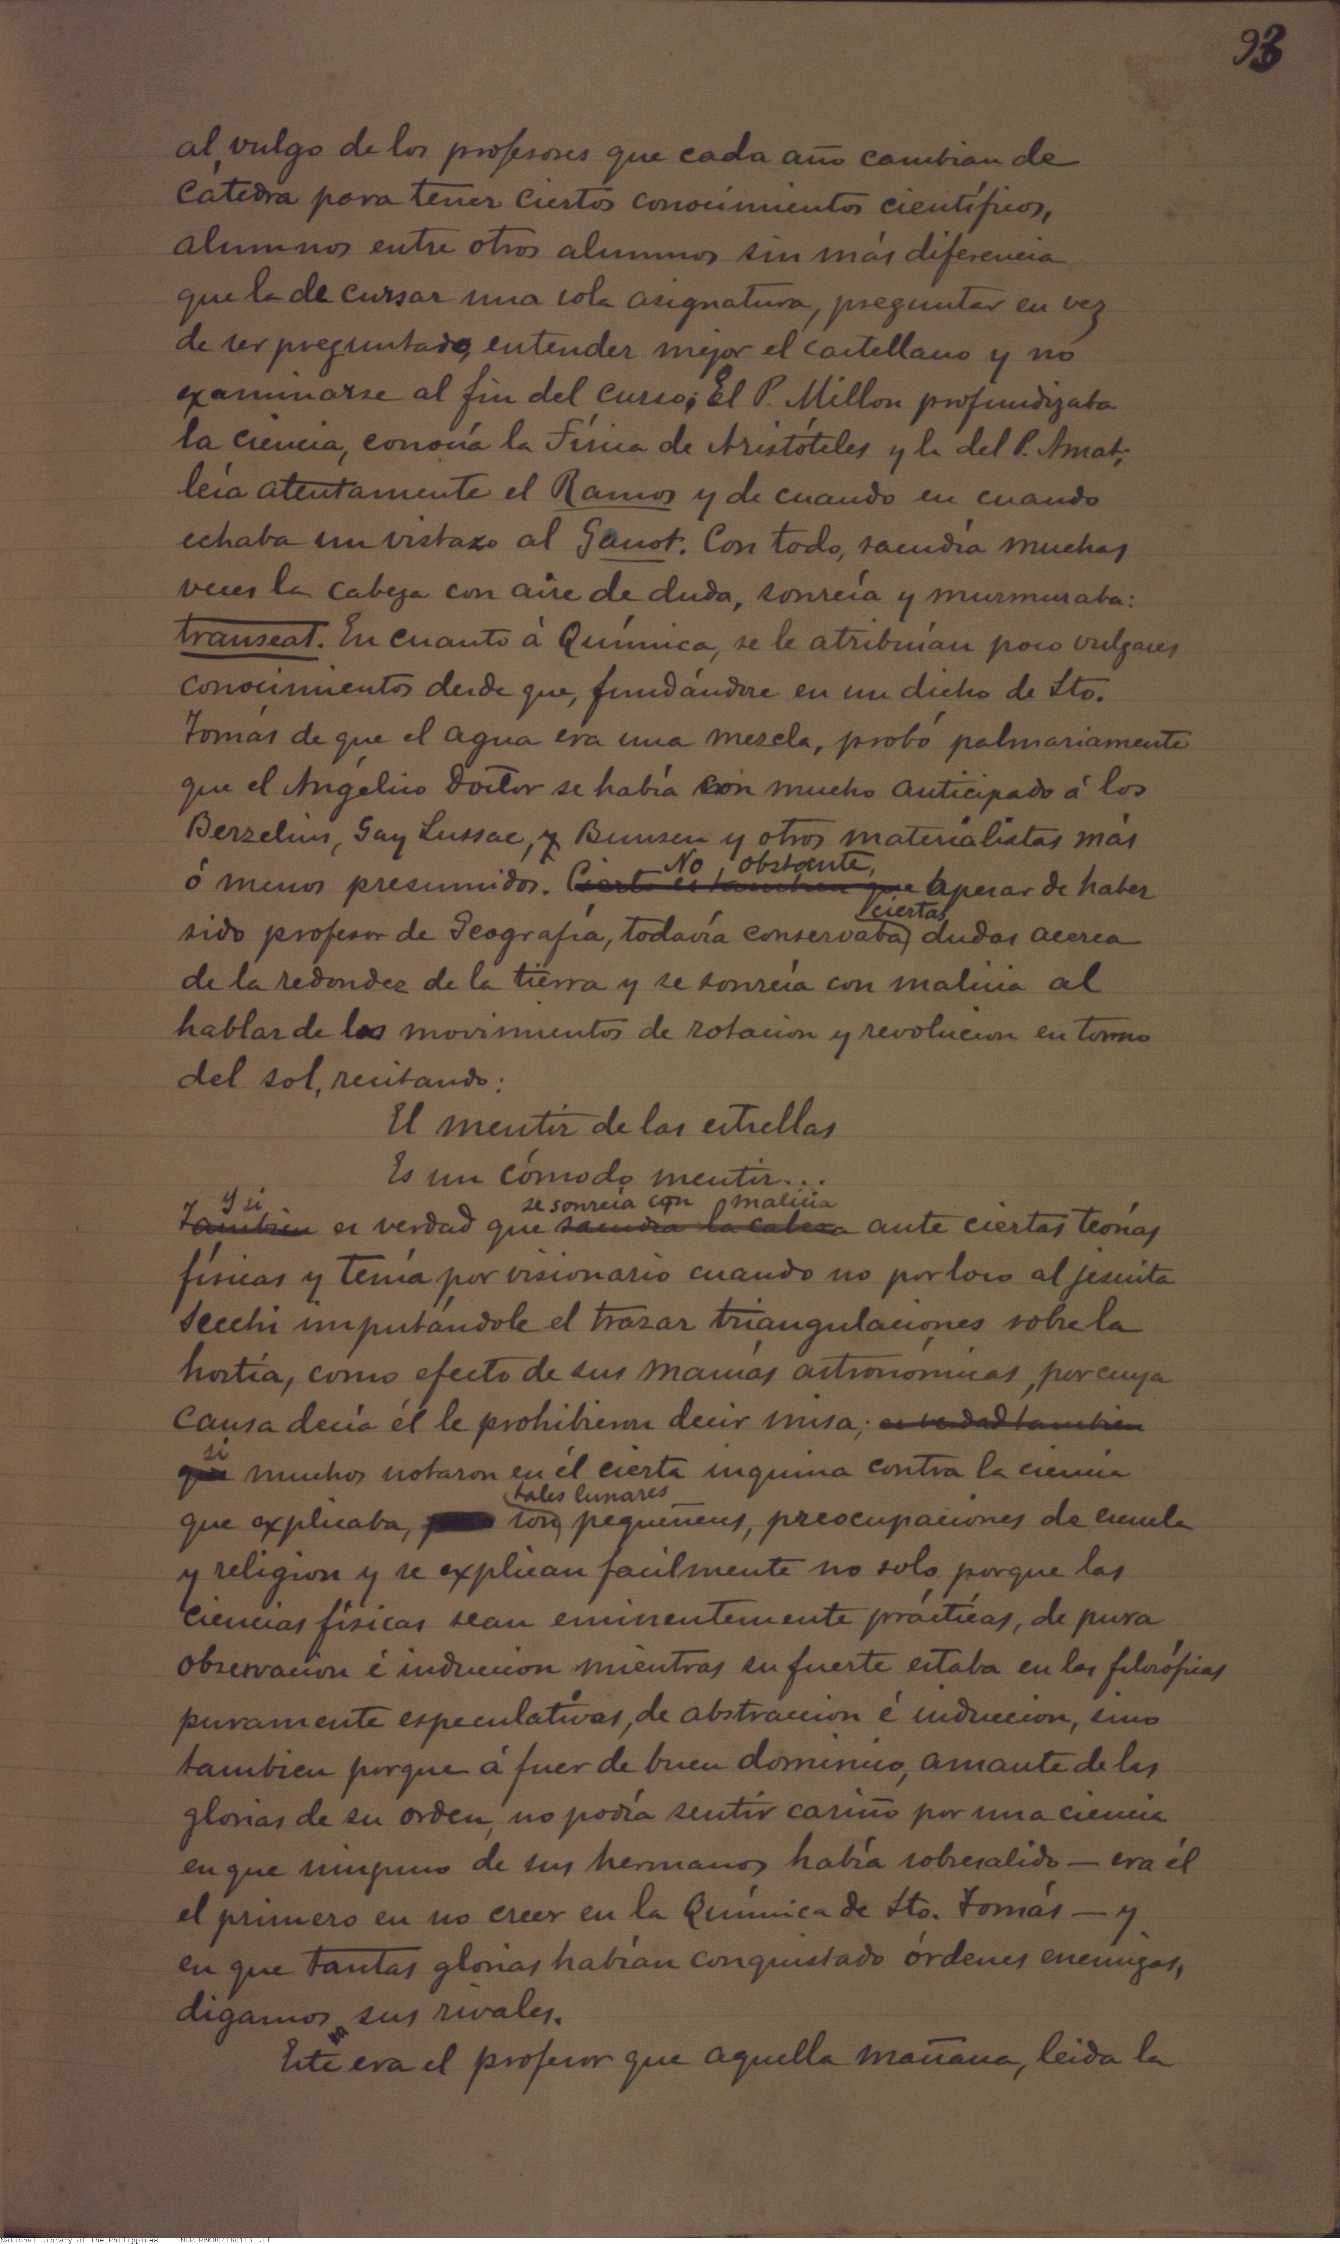 93
al vulgo de los profesores que cada año cambian de
cátedra para tener ciertos conocimientos científicos,
alumnos entre otros alumnos sin más diferencia
que la de cursar una sola asignatura, preguntar en vez
de ser preguntado, entender mejor el castellano y no
examinarse al fin del curso; El P. Millon profundizaba
la ciencia, conocía la Física de Aristóteles y la del P. Amat;
leía atentamente el Ramos y de cuando en cuando
echaba un vistazo al Ganot. Con todo, sacudía muchas
veces la cabeza con aire de duda, sonreía y murmuraba:
transeat. En cuanto á Química, se le atribuían poco vulgares
conocimientos desde que, fundándose en un dicho de Sto.
Tomás de que el agua era una mezcla, probó palmariamente
que el Angélico Doctor se había con mucho anticipado á los
Berzelius, Gay Lussac, y Bunsen y otros materialistas más
No obstante,
ó menos presumidos. Cierto es tambien que apesar de haber
ciertas
sido profesor de Geografía, todavía conservaba dudas acerca
de la redondez de la tierra y se sonreía con malicia al
hablar de los movimientos de rotacion y revolucion en torno
del sol, recitando:
El mentir de las estrellas
Es un cómodo mentir...
Y si se sonreía con malicia
Tambien es verdad que sacudía la cabeza ante ciertas teorías
físicas y tenía por visionario cuando no por loco al jesuita
Secchi imputándole el trazar triangulaciones sobre la
hostia, como efecto de sus manías astronómicas, por cuya
causa decía él le prohibieron decir misa; es verdad tambien
si
que muchos notaron en él cierta inquina contra la ciencia
tales lunares
que explicaba, son pequeñeces, preocupaciones de escuela
y religion y se explican facilmente no solo porque las
ciencias físicas sean eminentemente prácticas, de pura
observacion é induccion mientras su fuerte estaba en las filosóficas
puramente especulativas, de abstraccion é induccion, sino
tambien porque á fuer de buen dominico, amante de las
glorias de su orden, no podía sentir cariño por una ciencia
en que ninguno de sus hermanos había sobresalido — era él
el primero en no creer en la Química de Sto. Tomás — y
en que tantas glorias habían conquistado órdenes enemigas,
digamos sus rivales.
Este era el profesor que aquella mañana, leida la